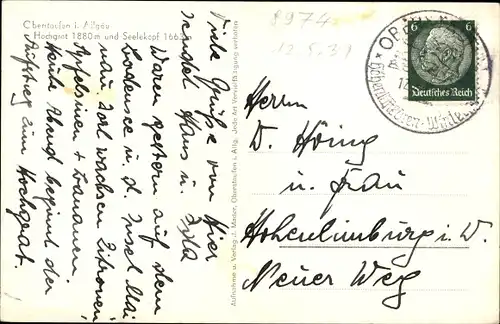 Oberstaufen i. Allgäu
Hochgrat 1880 m und Seelekopf 1663
8974
12.5.39
Viele Grüße von hier
sendet Hans u. Isla
Waren gestern auf dem
Bodensee u. d. Insel Mai
nau dort wachsen Zitronen,
Apfelsinen + Bananen.
Heute Abend beginnt der
Aufstieg zum Hochgrat.
Aufnahme u. Verlag J. Mader, Oberstaufen i. Allg. Jede Art Vervielfältigung verboten
6 6
Deutsches Reich
Herrn
W. Höing
u. Frau
Hohenlimburg i. W.
Neuer Weg